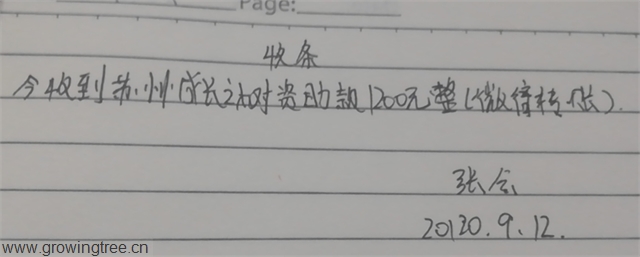 Page:
收条
今收到苏州成长之树对资助款1200元整(微信转账).
张会
20120.9.12.
www.growingtree.cn